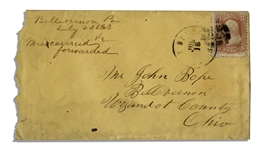 Bellvernon Pa
July 22 1863
Miscarried &
forwarded
Mr John Pope
Bellvernon
Wyandot County
Ohio